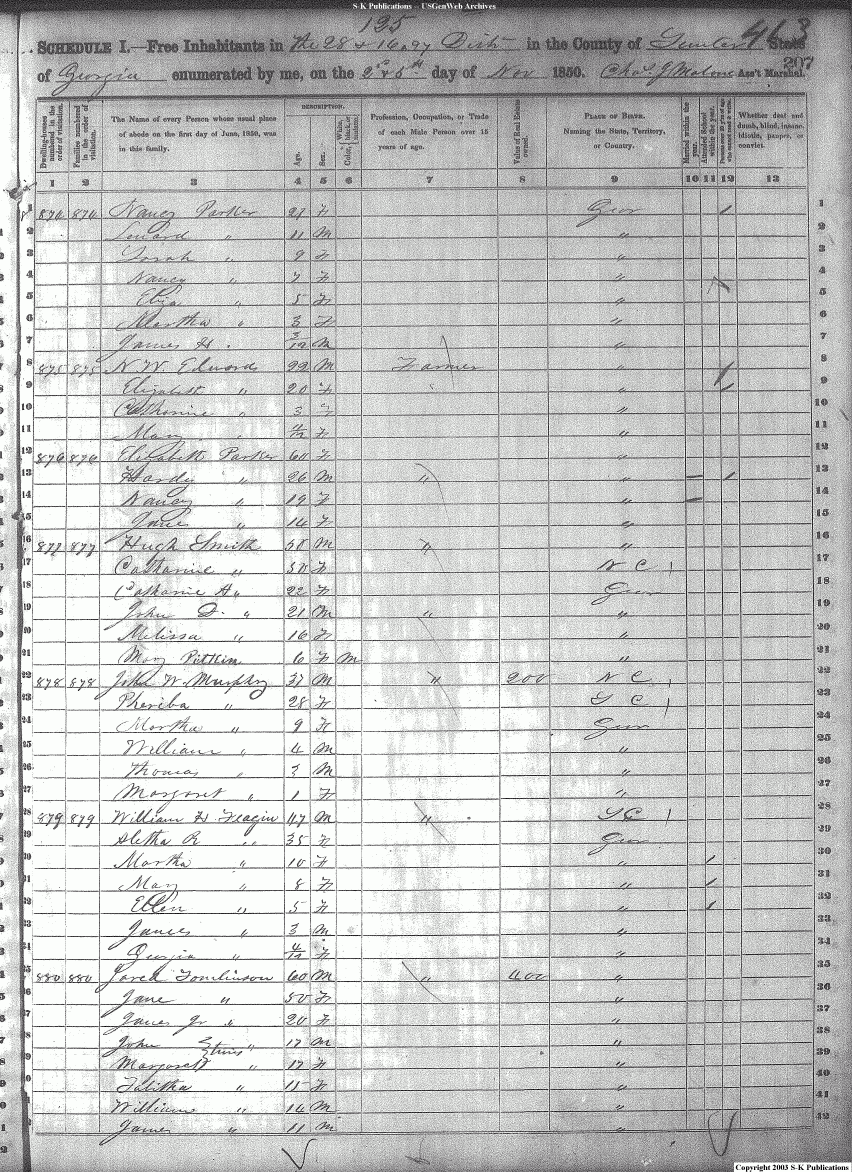 S-K Publications – USGenWeb Archives
195
413
SCHEDULE I.—Free Inhabitants in the 28 & 16 & 27 Dist in the County of Sumter State
207
of Georgia enumerated by me, on the day of Nov 1850. Chas J Malone Ass't Marshal.
Dwelling-houses numbered in the order of visitation.
Families numbered in the order of visitation.
The Name of every Person whose usual place of abode on the first day of June, 1850, was in this family.
DESCRIPTION.
Age.
Sex.
White, Color, black, or mulatto.
Profession, Occupation, or Trade of each Male Person over 15 years of age.
Value of Real Estate owned.
PLACE OF BIRTH. Naming the State, Territory, or Country.
Married within the year.
Attended School within the year.
Persons over 20 y'rs of age who cannot read & write.
Whether deaf and dumb, blind, insane, idiotic, pauper, or convict.
1 2 3 4 5 6 7 8 9 10 11 12 13
1 874 874 Nancy Parker F Geor / 1
2 " 11 M " 2
3 Sarah " 9 F " 3
4 Nancy " 7 F " 4
5 " 5 F " 5
6 Martha " 3 F " 6
7 James H. 3/12 M " 7
8 875 875 N. W. Edwards 22 M Farmer " / 8
9 Elizabeth " 20 F " / 9
10 Catharine " 3 F " 10
11 Mary " 4/12 F " 11
12 876 876 Elizabeth Parker F " 12
13 Hardy " 26 M " " – / 13
14 Nancy " 19 F " – 14
15 " 14 F " 15
16 877 877 Hugh Smith 58 M " " 16
17 Catharine " F N C 17
18 Catharine A " 22 F Geor 18
19 John D. " 21 M " " 19
20 Melissa " 16 F " 20
21 Mary Pitkin 6 F M " 21
22 878 878 John W. Murphy 37 M " 200 N C 22
23 Pheriba " 28 F S C 23
24 Martha " 9 F Geor 24
25 William " 4 M " 25
26 Thomas " M " 26
27 Margaret " 1 F " 27
28 879 879 William H. Feagin 47 M " S C 28
29 Aletha R " 35 F Geor 29
30 Martha " 10 F " / 30
31 Mary " 8 F " / 31
32 Ellen " 5 F " / 32
33 James " 3 M " 33
34 Georgia " 4/12 F " 34
35 880 880 Jared Tomlinson 60 M " 400 " 35
36 Jane " 50 F " 36
37 Jr " 20 F " 37
38 John " 17 M " 38
39 Margarett " 17 F " 39
40 Tabitha " F " 40
41 William " 14 M " 41
42 James " 11 M " 42
Copyright 2003 S-K Publications